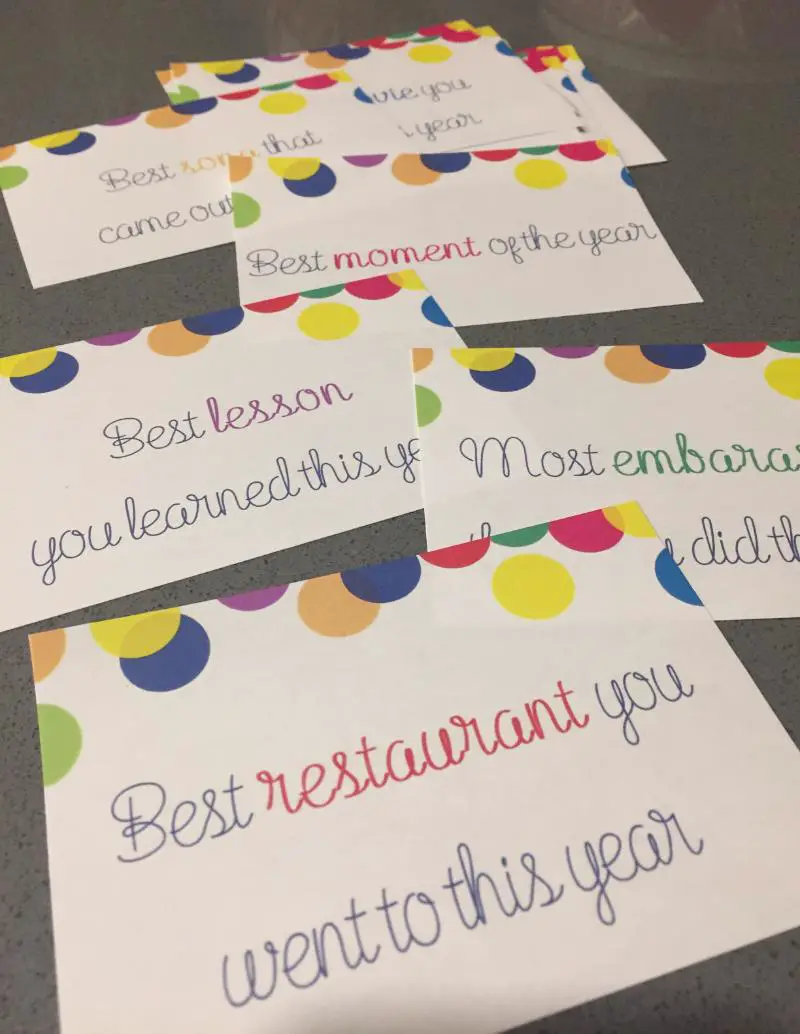 you
year
Best song that
came out
Best moment of the year
Best lesson
you learned this
Most
did
Best restaurant you
went to this year